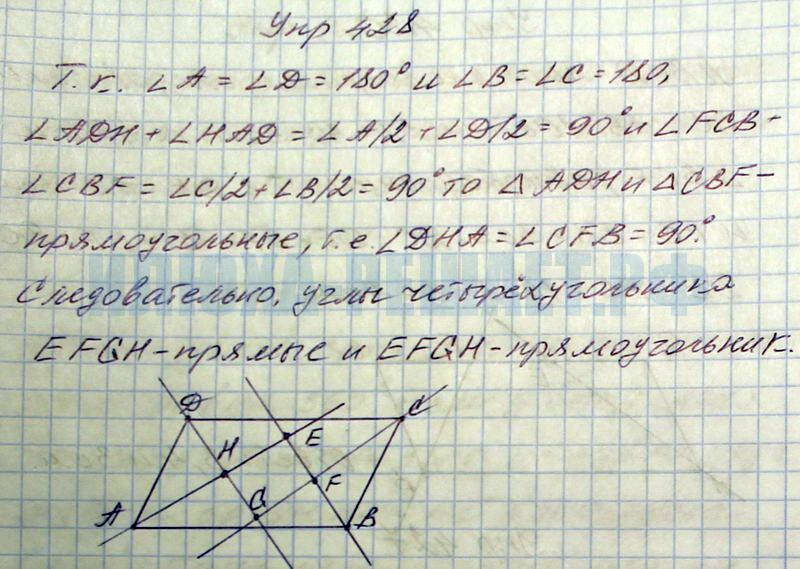 Упр 428
Т.к. ∠A = ∠D = 180° и ∠B = ∠C = 180,
∠ADH + ∠HAD = ∠A/2 + ∠D/2 = 90° и ∠FCB +
∠CBF = ∠C/2 + ∠B/2 = 90° то △ADH и △CBF –
прямоугольные, т.е. ∠DHA = ∠CFB = 90.°
Следовательно, углы четырёхугольника
EFGH – прямые и EFGH – прямоугольник.
D C
E
H
F
G
A B